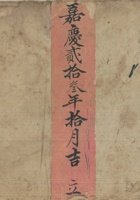 嘉慶貳拾叁年拾月吉立